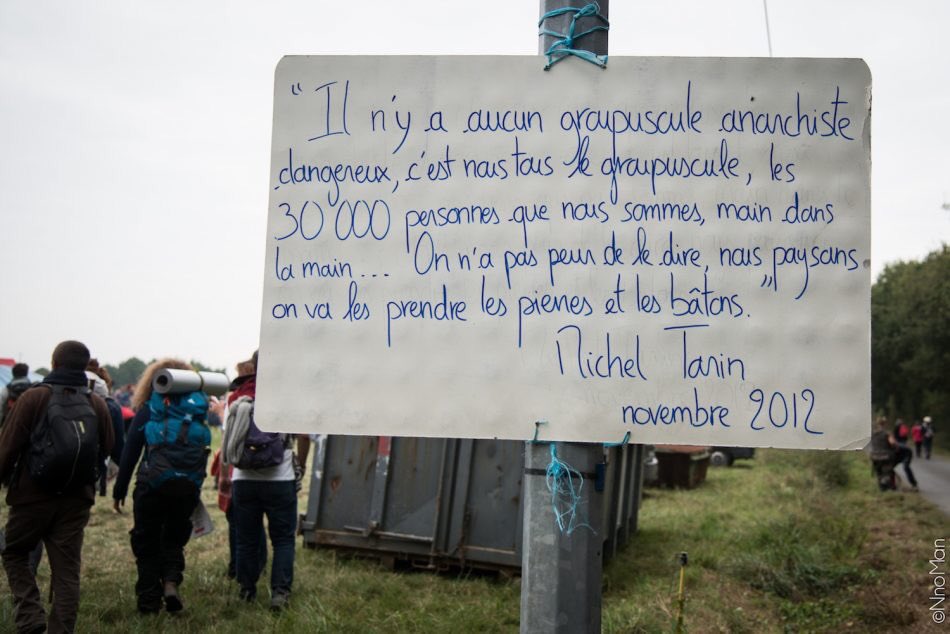 " Il n'y a aucun groupuscule anarchiste
dangereux, c'est nous tous le groupuscule, les
30'000 personnes que nous sommes, main dans
la main... On n'a pas peur de le dire, nous paysans
on va les prendre les pierres et les bâtons. "
Michel Tarin
novembre 2012
©NnoMan